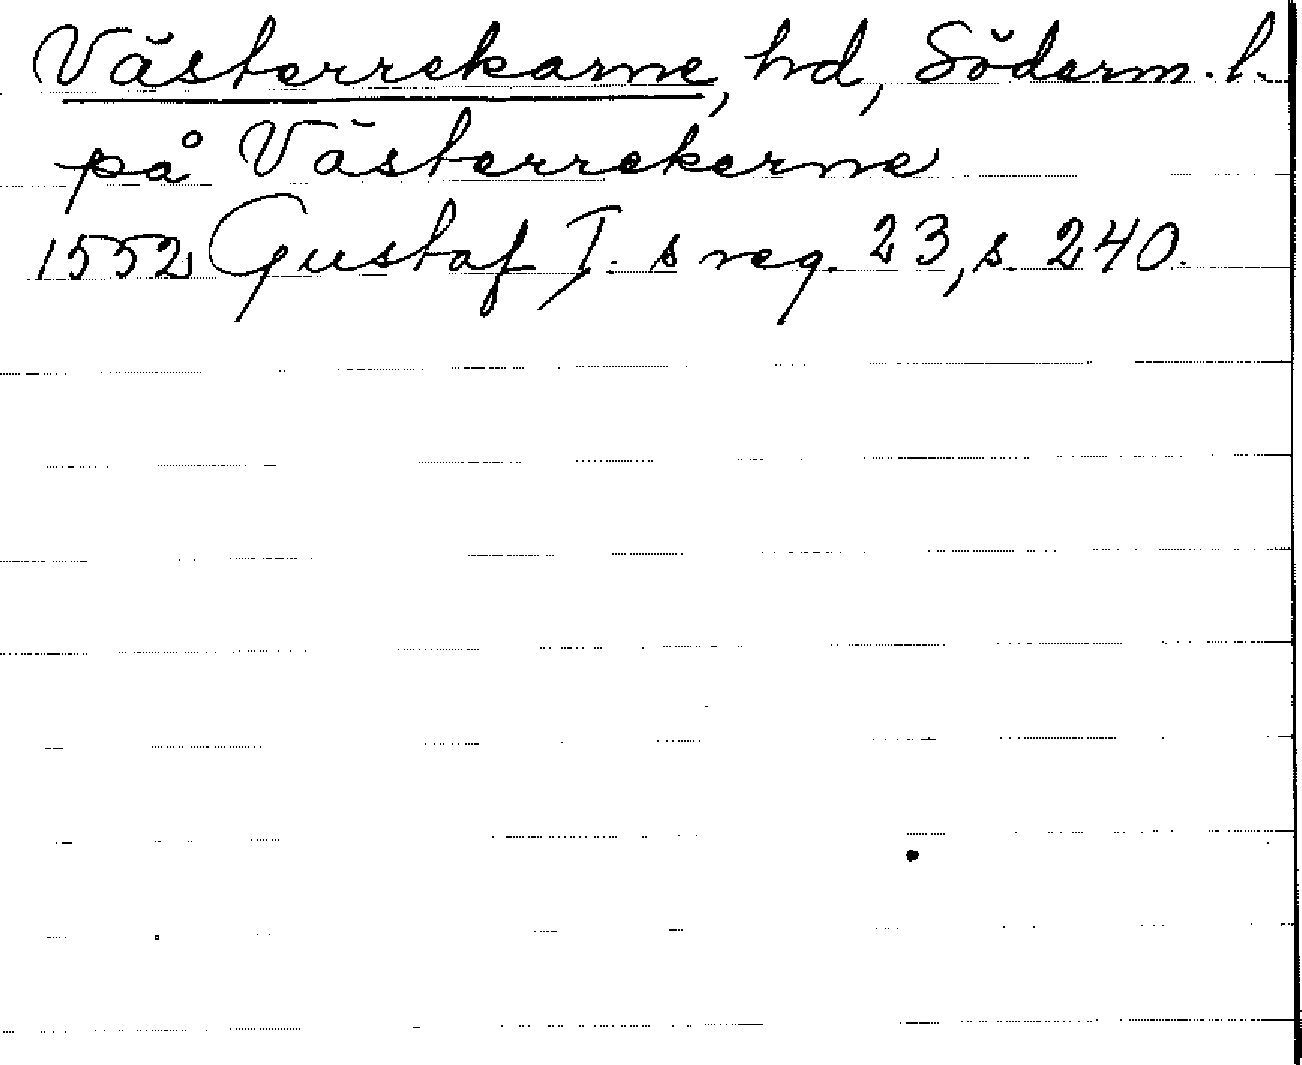 Västerrekarne, hd, Söderm. l.
på Västerrekerne
1552 Gustaf I. s reg. 23, s. 240.